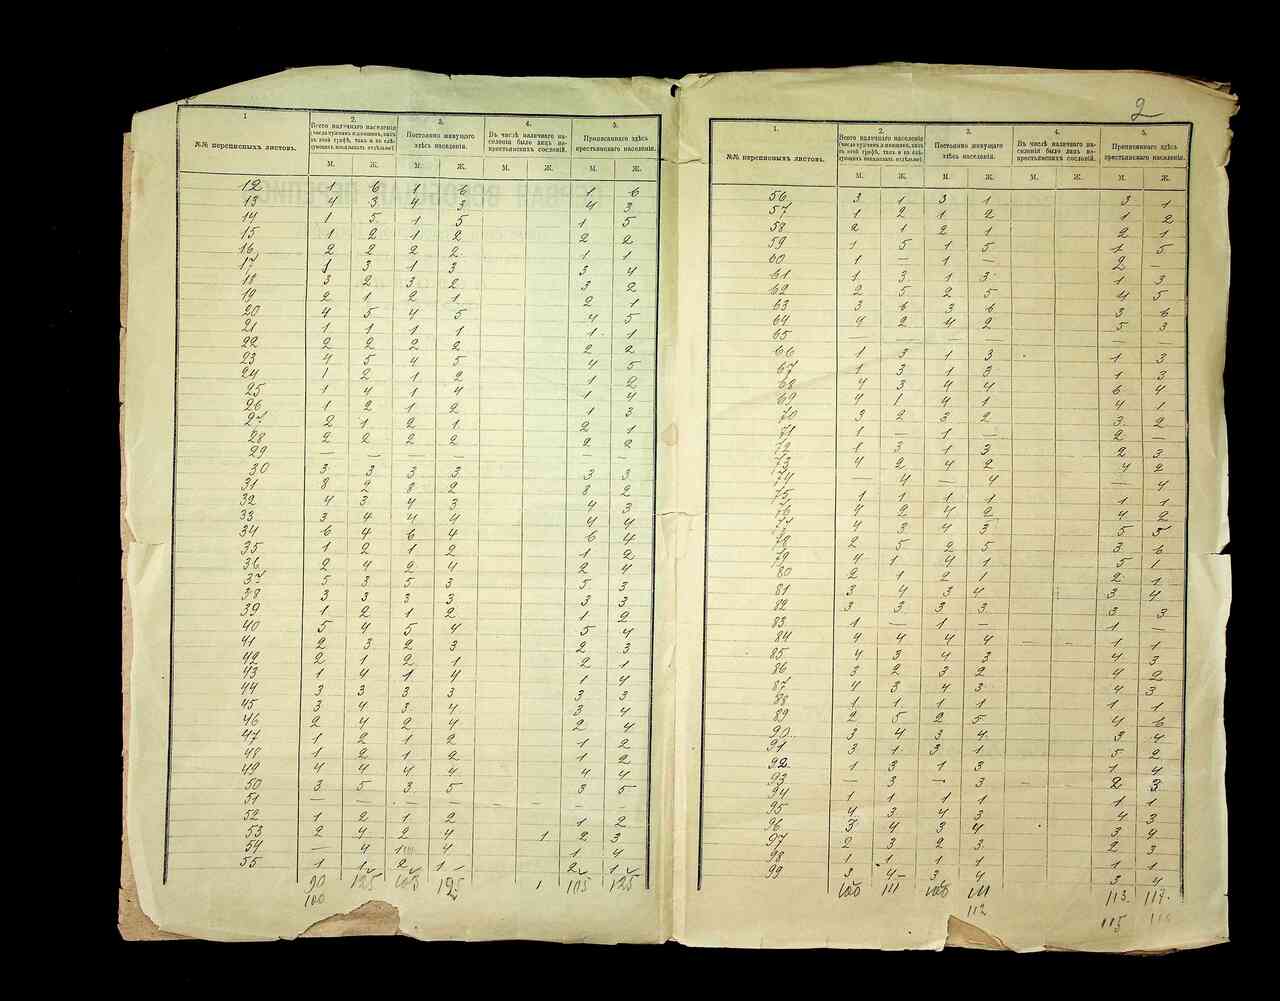 1 2. 3. 4. 5.
№№ переписныхъ листовъ. Всего наличнаго населенія Постоянно живущаго здѣсь населенія. Въ числѣ наличнаго населенія было лицъ некрестьянскихъ сословій. Приписаннаго здѣсь крестьянскаго населенія.
М. Ж. М. Ж. М. Ж. М. Ж.
12 1 6 1 6 1 6
13 4 3 4 3 4 3
14 1 5 1 5 1 5
15 1 2 1 2 2 2
16 2 2 2 2 1 1
17 1 3 1 3 3 4
18 3 2 3 2 3 2
19 2 1 2 1 2 1
20 4 5 4 5 4 5
21 1 1 1 1 1 1
22 2 2 2 2 2 2
23 4 5 4 5 4 5
24 1 2 1 2 1 2
25 1 4 1 4 1 4
26 1 2 1 2 1 3
27 2 1 2 1 2 1
28 2 2 2 2 2 2
29 — — — — — —
30 3 3 3 3 3 3
31 8 2 8 2 8 2
32 4 3 4 3 4 3
33 3 4 4 4 4 4
34 6 4 6 4 6 4
35 1 2 1 2 1 2
36 2 4 2 4 2 4
37 5 3 5 3 5 3
38 3 3 3 3 3 3
39 1 2 1 2 1 2
40 5 4 5 4 5 4
41 2 3 2 3 2 3
42 2 1 2 1 2 1
43 1 4 1 4 1 4
44 3 3 3 3 3 3
45 3 4 3 4 3 4
46 2 4 2 4 2 4
47 1 2 1 2 1 2
48 1 2 1 2 1 2
49 4 4 4 4 4 4
50 3 5 3 5 3 5
51 — — — — — — — —
52 1 2 1 2 1 2
53 2 4 2 4 1 2 3
54 — 4 1 4 1 4
55 1 1 2 1 2 1
90 125 103 125 1 105 125
100
2
1 2. 3. 4. 5.
№№ переписныхъ листовъ. Всего наличнаго населенія Постоянно живущаго здѣсь населенія. Въ числѣ наличнаго населенія было лицъ некрестьянскихъ сословій. Приписаннаго здѣсь крестьянскаго населенія.
М. Ж. М. Ж. М. Ж. М. Ж.
56 3 1 3 1 3 1
57 1 2 1 2 1 2
58 2 1 2 1 2 1
59 1 5 1 5 1 5
60 1 — 1 — 2 —
61 1 3 1 3 1 3
62 2 5 2 5 4 5
63 3 6 3 6 3 6
64 4 2 4 2 5 3
65 — — — — — —
66 1 3 1 3 1 3
67 1 3 1 3 1 3
68 4 3 4 4 6 4
69 4 1 4 1 4 1
70 3 2 3 2 3 2
71 1 — 1 — 2 —
72 1 3 1 3 2 3
73 4 2 4 2 4 2
74 — 4 — 4 — 4
75 1 1 1 1 1 1
76 4 2 4 2 4 2
77 4 3 4 3 5 5
78 2 5 2 5 3 6
79 4 1 4 1 5 1
80 2 1 2 1 2 1
81 3 4 3 4 3 4
82 3 3 3 3 3 3
83 1 — 1 — 1 —
84 4 4 4 4 — — 1 1
85 4 3 4 3 4 3
86 3 2 3 2 4 2
87 4 3 4 3 4 3
88 1 1 1 1 1 1
89 2 5 2 5 4 6
90 3 4 3 4 3 4
91 3 1 3 1 5 2
92 1 3 1 3 1 4
93 — 3 — 3 — 2 3
94 1 1 1 1 1 1
95 4 3 4 3 4 3
96 3 4 3 4 3 4
97 2 3 2 3 2 3
98 1 1 1 1 1 1
99 3 4 3 4 3 4
100 111 100 111 113 117
112 115